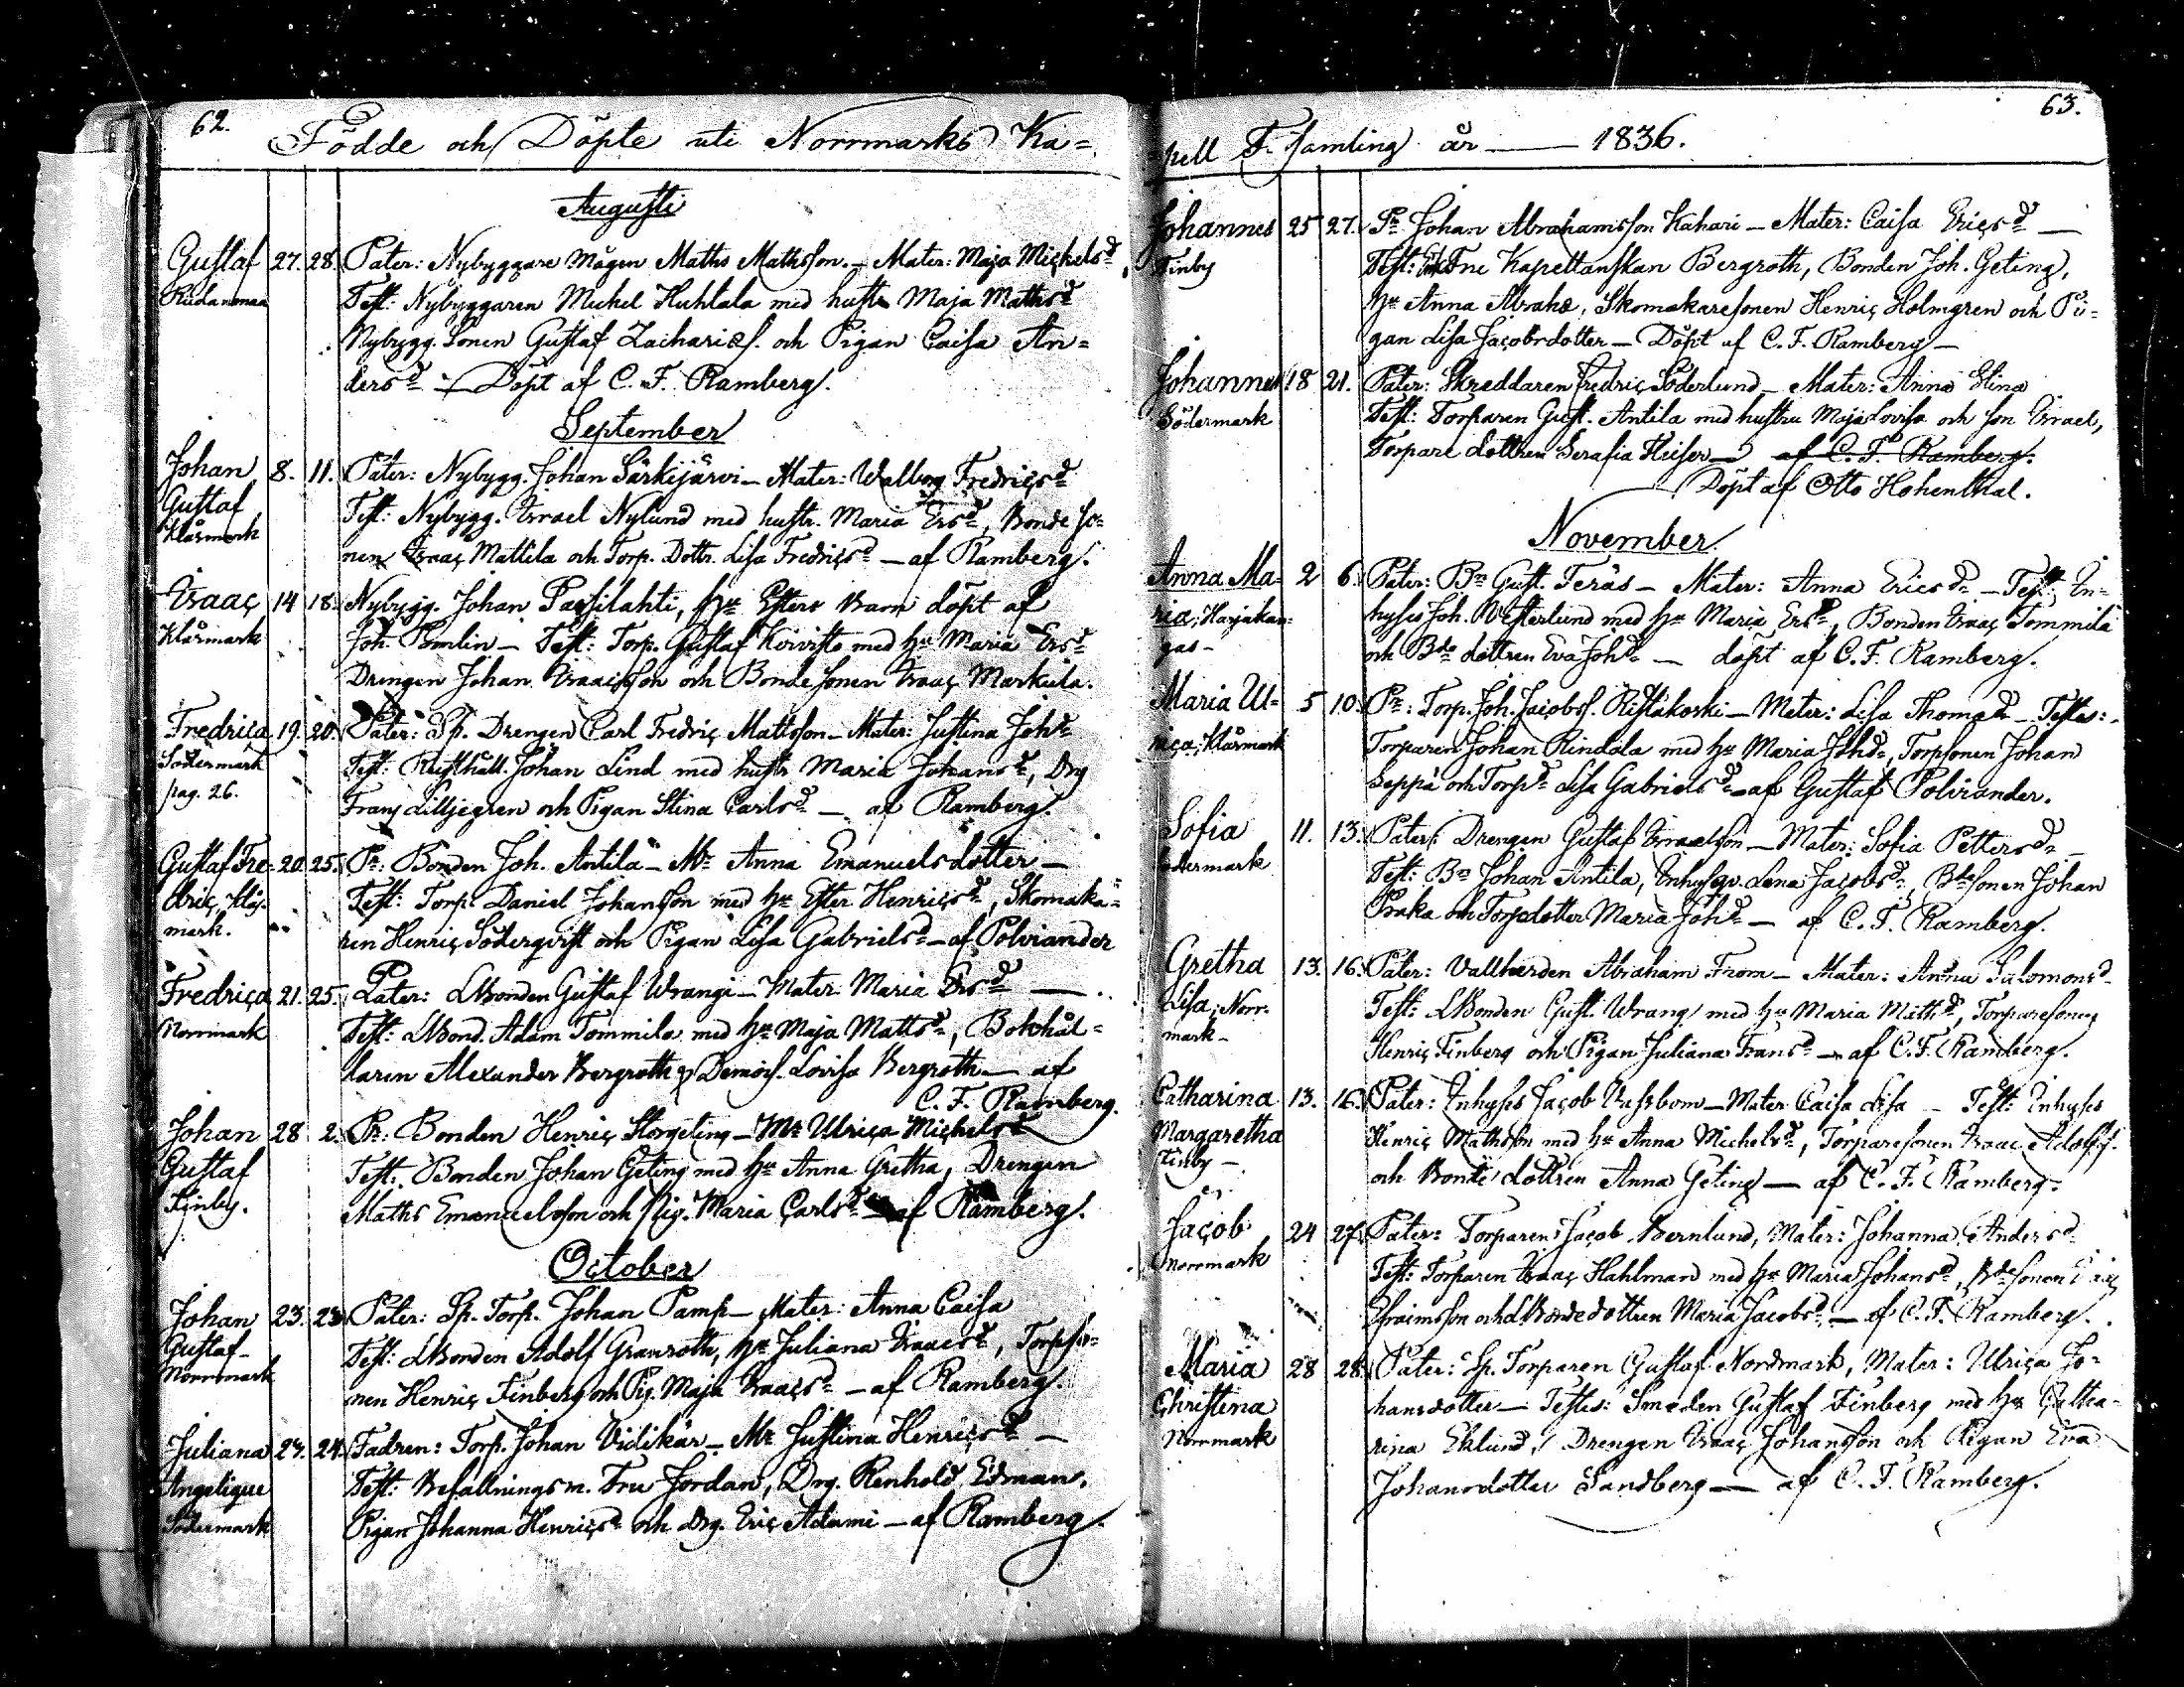 62.
Födde och Döpte uti Norrmarks Ka=
Augusti
Gustaf 27. 28. Pater: Nybyggare Mågen Maths Mathsson. – Mater: Maja Michelsd:r
Test: Nybyggaren Michel Huhtala med hustr Maja Mathsd:r
Nybygg. Sonen Gustaf Zachariæs. och Pigan Caisa An=
dersd:r – Döpt af C. F. Ramberg.
September
Johan 8. 11. Pater: Nybygg. Johan Särkijärvi – Mater: Walborg Fredricsd:r
Gustaf
Klåsmark
Test: Nybygg. Israel Nylund med hustr. Maria Ersd:r, Bonde so=
nen Isaac Mattila och Torp. Dottr. Lisa Fredricsd:r – af Ramberg.
Isaac 14 18. Nybygg. Johan Passilahti, Hu Esters Barn döpt af
Klåsmark
Joh. Pomlin – Test: Torp. Gustaf Koivisto med Hu Maria Ersd:r
Drengen Johan Isaacsson och Bonde sonen Isaac Markula.
Fredrica 19. 20. Pater: Sp. Drengen Carl Fredric Mattsson – Mater: Justina Johd:r
Södermark
pag. 26.
Test: Rusthåll. Johan Lind med hustr Maria Johansd:r, Drg
Franz Lilljegren och Pigan Stina Carlsd:r – af Ramberg.
Gustaf Fre= 20. 25. Pr: Bonden Joh. Antila – Mr Anna Emanuelsdotter –
dric, Klås=
mark.
Test: Torp. Daniel Johansson med Hu Ester Henricsd:r, Skomaka=
ren Henric Söderqvist och Pigan Lisa Gabrielsd:r – af Polviander
Fredrica 21. 25. Pater: LBonden Gustaf Wrangi – Mater Maria Ersd:r –
Norrmark
Test: LBond. Adam Tommila med Hu Maja Mattsd:r, Bokhål=
laren Alexander Bergroth & Demois. Lovisa Bergroth – af
C. F. Ramberg.
Johan 28 2. Pr: Bonden Henric Storgeting – Mr Ulrica Michelsd:r
Gustaf
Finby.
Test: Bonden Johan Geting med Hu Anna Gretha, Drengen
Maths Emanuelsson och Pig. Maria Carlsd:r – af Ramberg.
October
Johan 23. 23. Pater: Sp. Torp. Johan Pamp – Mater: Anna Caisa
Gustaf –
Norrmark
Test: LBonden Adolf Granroth, Hu Juliana Isaacsd:r, Torpso=
nen Henric Finberg och Pig. Maja Isaacsd:r – af Ramberg.
Juliana 23. 24. Fadren: Torp. Johan Vidikär – Mr Justina Henricsd:r –
Angelique
Södermark
Test: Befallningsm. Fru Jordan, Drg. Renhold Edman,
Pigan Johanna Henricsd:r och Drg. Eric Adami – af Ramberg.
63.
=pell F. Samling år – 1836.
Johannes 25 27. Pr Johan Abrahamsson Kahari – Mater: Caisa Ericsd:r –
Finby
Test: Fru Kapellanskan Bergroth, Bonden Joh. Geting,
Hu Anna Abrahd:r, Skomakaresonen Henric Holmgren och Pi=
gan Lisa Jacobsdotter – Döpt af C. F. Ramberg –
Johannes 18 21. Pater: Skreddaren Fredric Söderlund – Mater: Anna Elina
Södermark
Test: Torparen Gust. Antila med hustru Maja Lovisa och son Israel,
Torpare dottren Serafia – af C. F. Ramberg.
Döpt af Otto Hohenthal.
November
Anna Ma= 2 6. Pater: Bn Gust. Teräs – Mater: Anna Ericsd:r – Test: In=
ria; Harjakan=
gas –
hyses Joh. Westerlund med Hu Maria Ersd:r, Bonden Isaac Tommila
och Bde dottren Eva Johd:r – döpt af C. F. Ramberg.
Maria Ul= 5 10. Pr: Torp. Joh. Jacobss. Ristikoski – Mater: Lisa Thomasd:r – Testes:
rica; Klåsmark
Torparen Johan Rindala med Hu Maria Johd:r, Torpsonen Johan
Seppä och Torpd:r Lisa Gabrielsd:r – af Gustaf Polviander.
Sofia 11. 13. Pater: Drengen Gustaf Israelsson – Mater: Sofia Pettersd:r –
Södermark
Test: Bn Johan Antila, Inhysqv. Lena Jacobsd:r, Bde sonen Johan
Praka och Torpdotter Maria Johd:r – af C. F. Ramberg.
Gretha 13. 16. Pater: Vallherden Abraham From – Mater: Anna Salomonsd:r
Lisa; Norr=
mark –
Test: LBonden Gust. Wrang med Hu Maria Mathsd:r, Torparesonen
Henric Finberg och Pigan Juliana Fransd:r – af C. F. Ramberg.
Catharina 13. 16. Pater: Inhyses Jacob – Mater Caisa Lisa – Test: Inhyses
Margaretha
Finby –
Henric Mathsson med Hu Anna Michelsd:r, Torparesonen Isaac Adolfs.
och Bonde dottren Anna Geting – af C. F. Ramberg.
Jacob 24 27. Pater: Torparen Jacob Bernlund, Mater: Johanna Andersd:r
Norrmark
Test: Torparen Isaac Hahlman med Hu Maria Johansd:r, Bde sonen Isaac
Efraimsson och LBondedottren Maria Jacobsd:r – af C. F. Ramberg.
Maria 28 28. Pater: Sp. Torparen Gustaf Nordmark, Mater: Ulrica Jo=
Christina
Norrmark
hansdotter – Testes: Smeden Gustaf Finberg med Hu Catha=
rina Eklund, Drengen Isaac Johansson och Pigan Eva
Johansdotter Sandberg – af C. F. Ramberg.